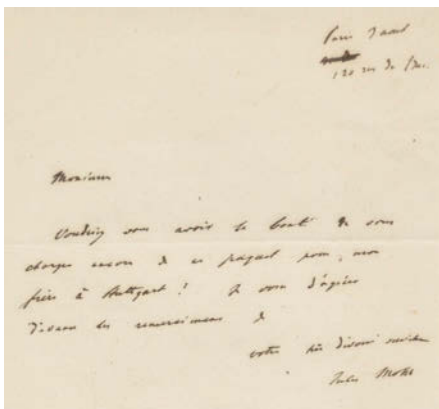 Paris 7 aout
120 rue du Bac.
Monsieur
Voudriez vous avoir la bonté de vous
charger encore de ce paquet pour mon
frère à Stuttgart! Je vous
d'avance les remerciemens de
votre très dévoué serviteur
Jules Mohl